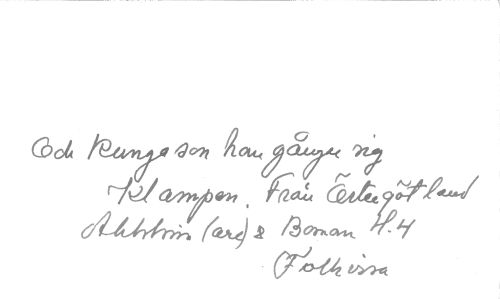 Och Kungason han gånger sig
Klampen. Från Östergötland
Ahlström (arr) & Boman H.4
Folkvisa